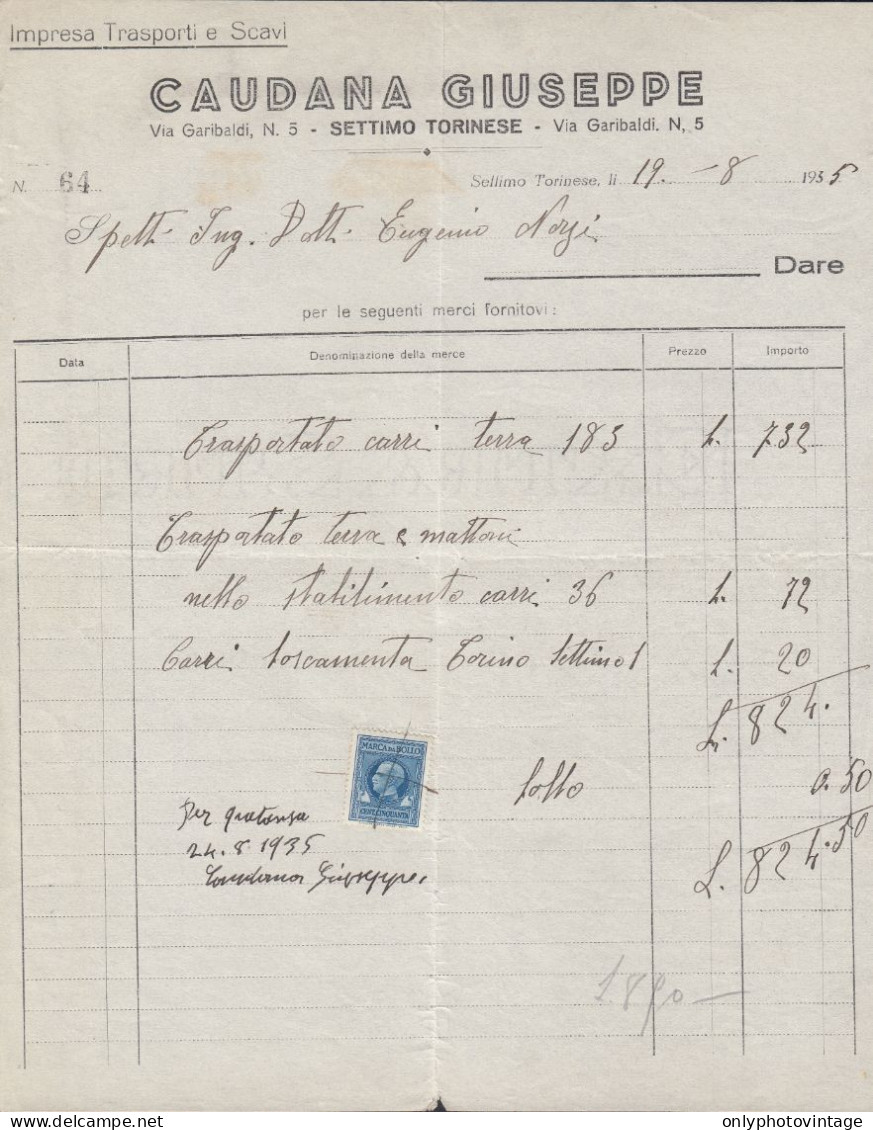 Impresa Trasporti e Scavi
CAUDANA GIUSEPPE
Via Garibaldi, N. 5 - SETTIMO TORINESE - Via Garibaldi. N, 5
N. 64
Settimo Torinese, li 19 - 8 1935
Spett. Ing. Dott. Eugenio
Dare
per le seguenti merci fornitovi:
Data Denominazione della merce Prezzo Importo
Trasportato carri terra 183 L. 732
Trasportato terra e mattoni
nello stabilimento carri 36 L. 72
Carri Torino Settimo 1 L. 20
L. 824.
MARCA DA BOLLO
CENT. CINQUANTA
bollo 0.50
per quetansa
24.8.1935
Caudana Giuseppe.
L. 824.50
www.delcampe.net
onlyphotovintage